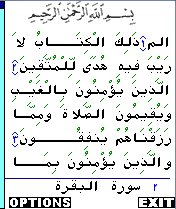 بِسْمِ اللَّهِ الرَّحْمَنِ الرَّحِيمِ
الم ﴿١﴾ ذَلِكَ الْكِتَابُ لَا
رَيْبَ فِيهِ هُدًى لِّلْمُتَّقِينَ ﴿٢﴾
الَّذِينَ يُؤْمِنُونَ بِالْغَيْبِ
وَيُقِيمُونَ الصَّلَاةَ وَمِمَّا
رَزَقْنَاهُمْ يُنفِقُونَ ﴿٣﴾
وَالَّذِينَ يُؤْمِنُونَ بِمَا
٢ سورة البقرة
OPTIONS EXIT